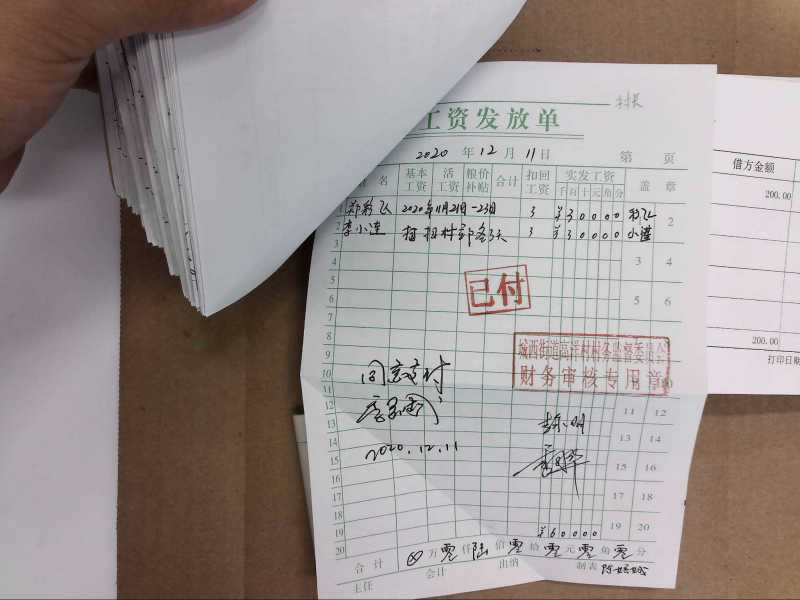 村长
工资发放单
2020 年 12 月 11 日 第 页
名 基本工资 活工资 粮价补贴 合计 扣回工资 实发工资 盖章
千 百 十 元 角 分
1 郑彩飞 2020年11月21日-23日 3 ¥30000 彩飞 2
2 李小莲 扫 村 3天 3 ¥30000 小莲
3 3 4
4
5 5 6
6 已付
7
8
9 城西街道高洋村村务监督委员会
10 财务审核专用章
同意支付
11 11 12
12
13 13 14
2020.12.11
14
15 15 16
16
17 17 18
18
19 ¥60000 19 20
20
合计 ⊗ 万 零 仟 陆 佰 零 拾 零 元 零 角 零 分
主任 会计 出纳 制表
借方金额
200.00
200.00
打印日期